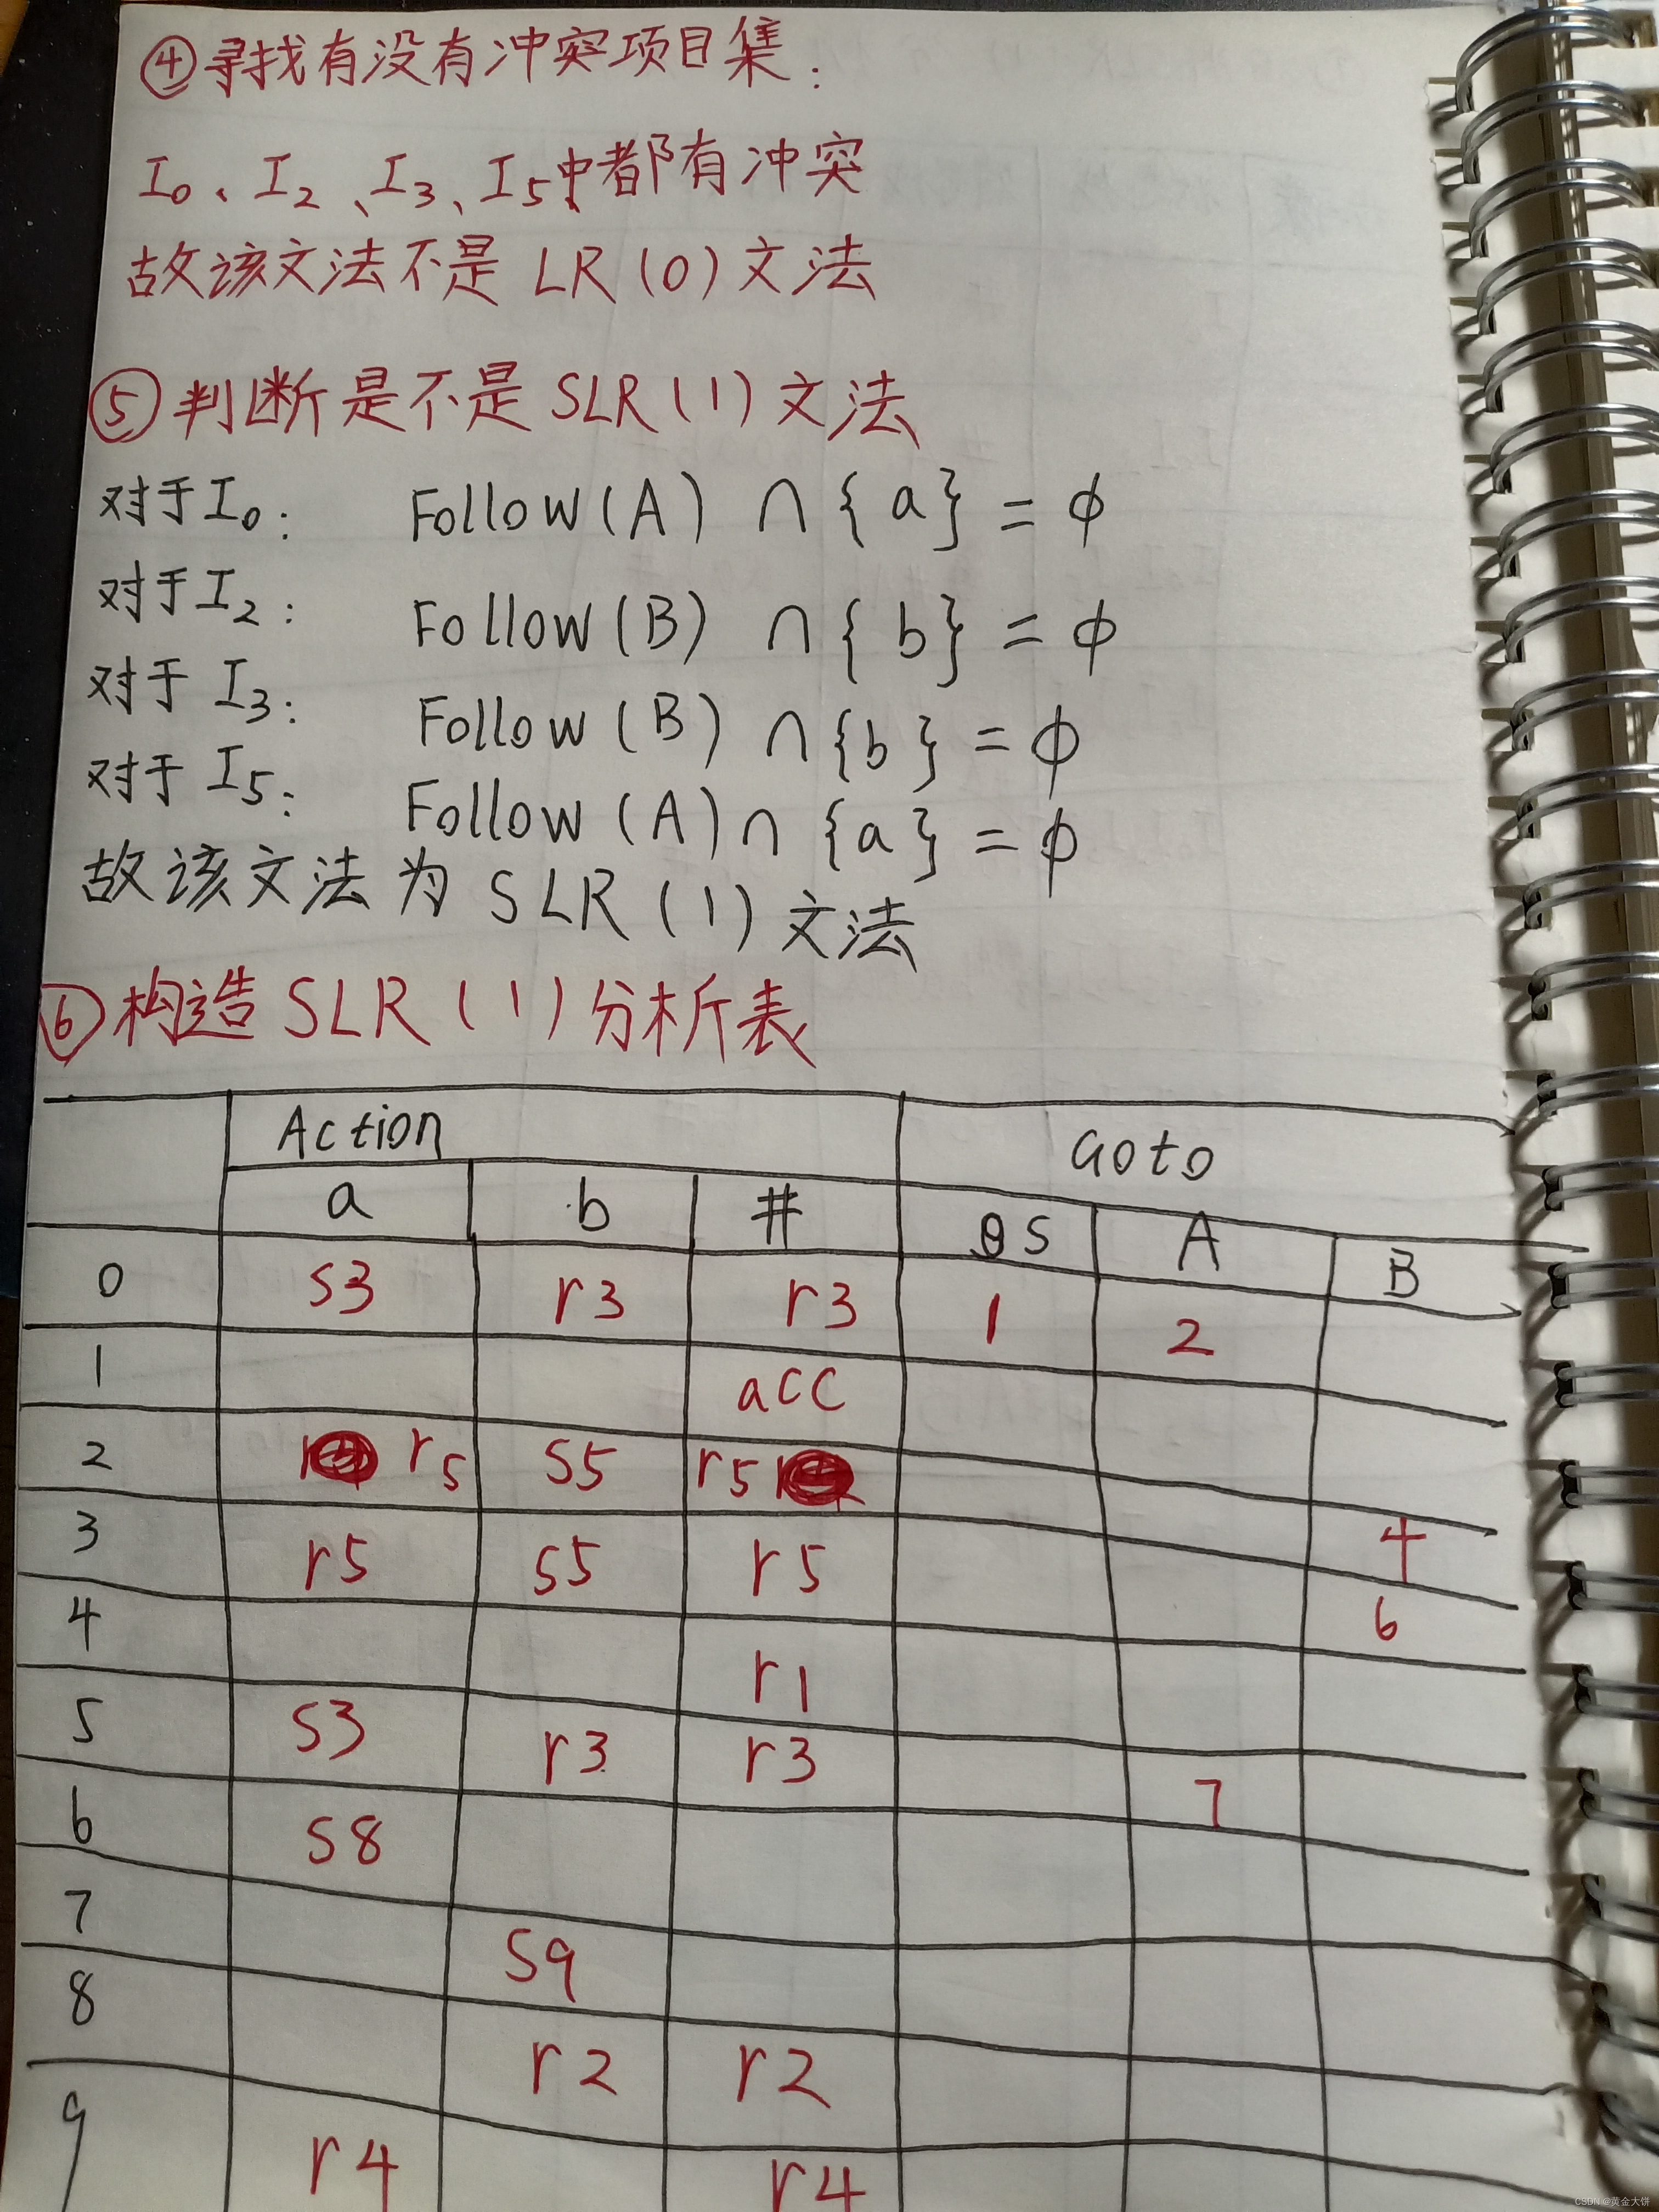 ④寻找有没有冲突项目集:
I0、I2、I3、I5中都有冲突
故该文法不是 LR(0)文法
⑤判断是不是SLR(1)文法
对于I0: Follow(A) ∩ {a} = ϕ
对于I2: Follow(B) ∩ {b} = ϕ
对于I3: Follow(B) ∩ {b} = ϕ
对于I5: Follow(A) ∩ {a} = ϕ
故该文法为SLR(1)文法
⑥构造SLR(1)分析表
Action Goto
a b # S A B
0 S3 r3 r3 1 2
1 acc
2 r5 S5 r5 4
3 r5 S5 r5 6
4 r1
5 S3 r3 r3 7
6 S8
7 S9
8 r2 r2
9 r4 r4
CSDN @黄金大饼